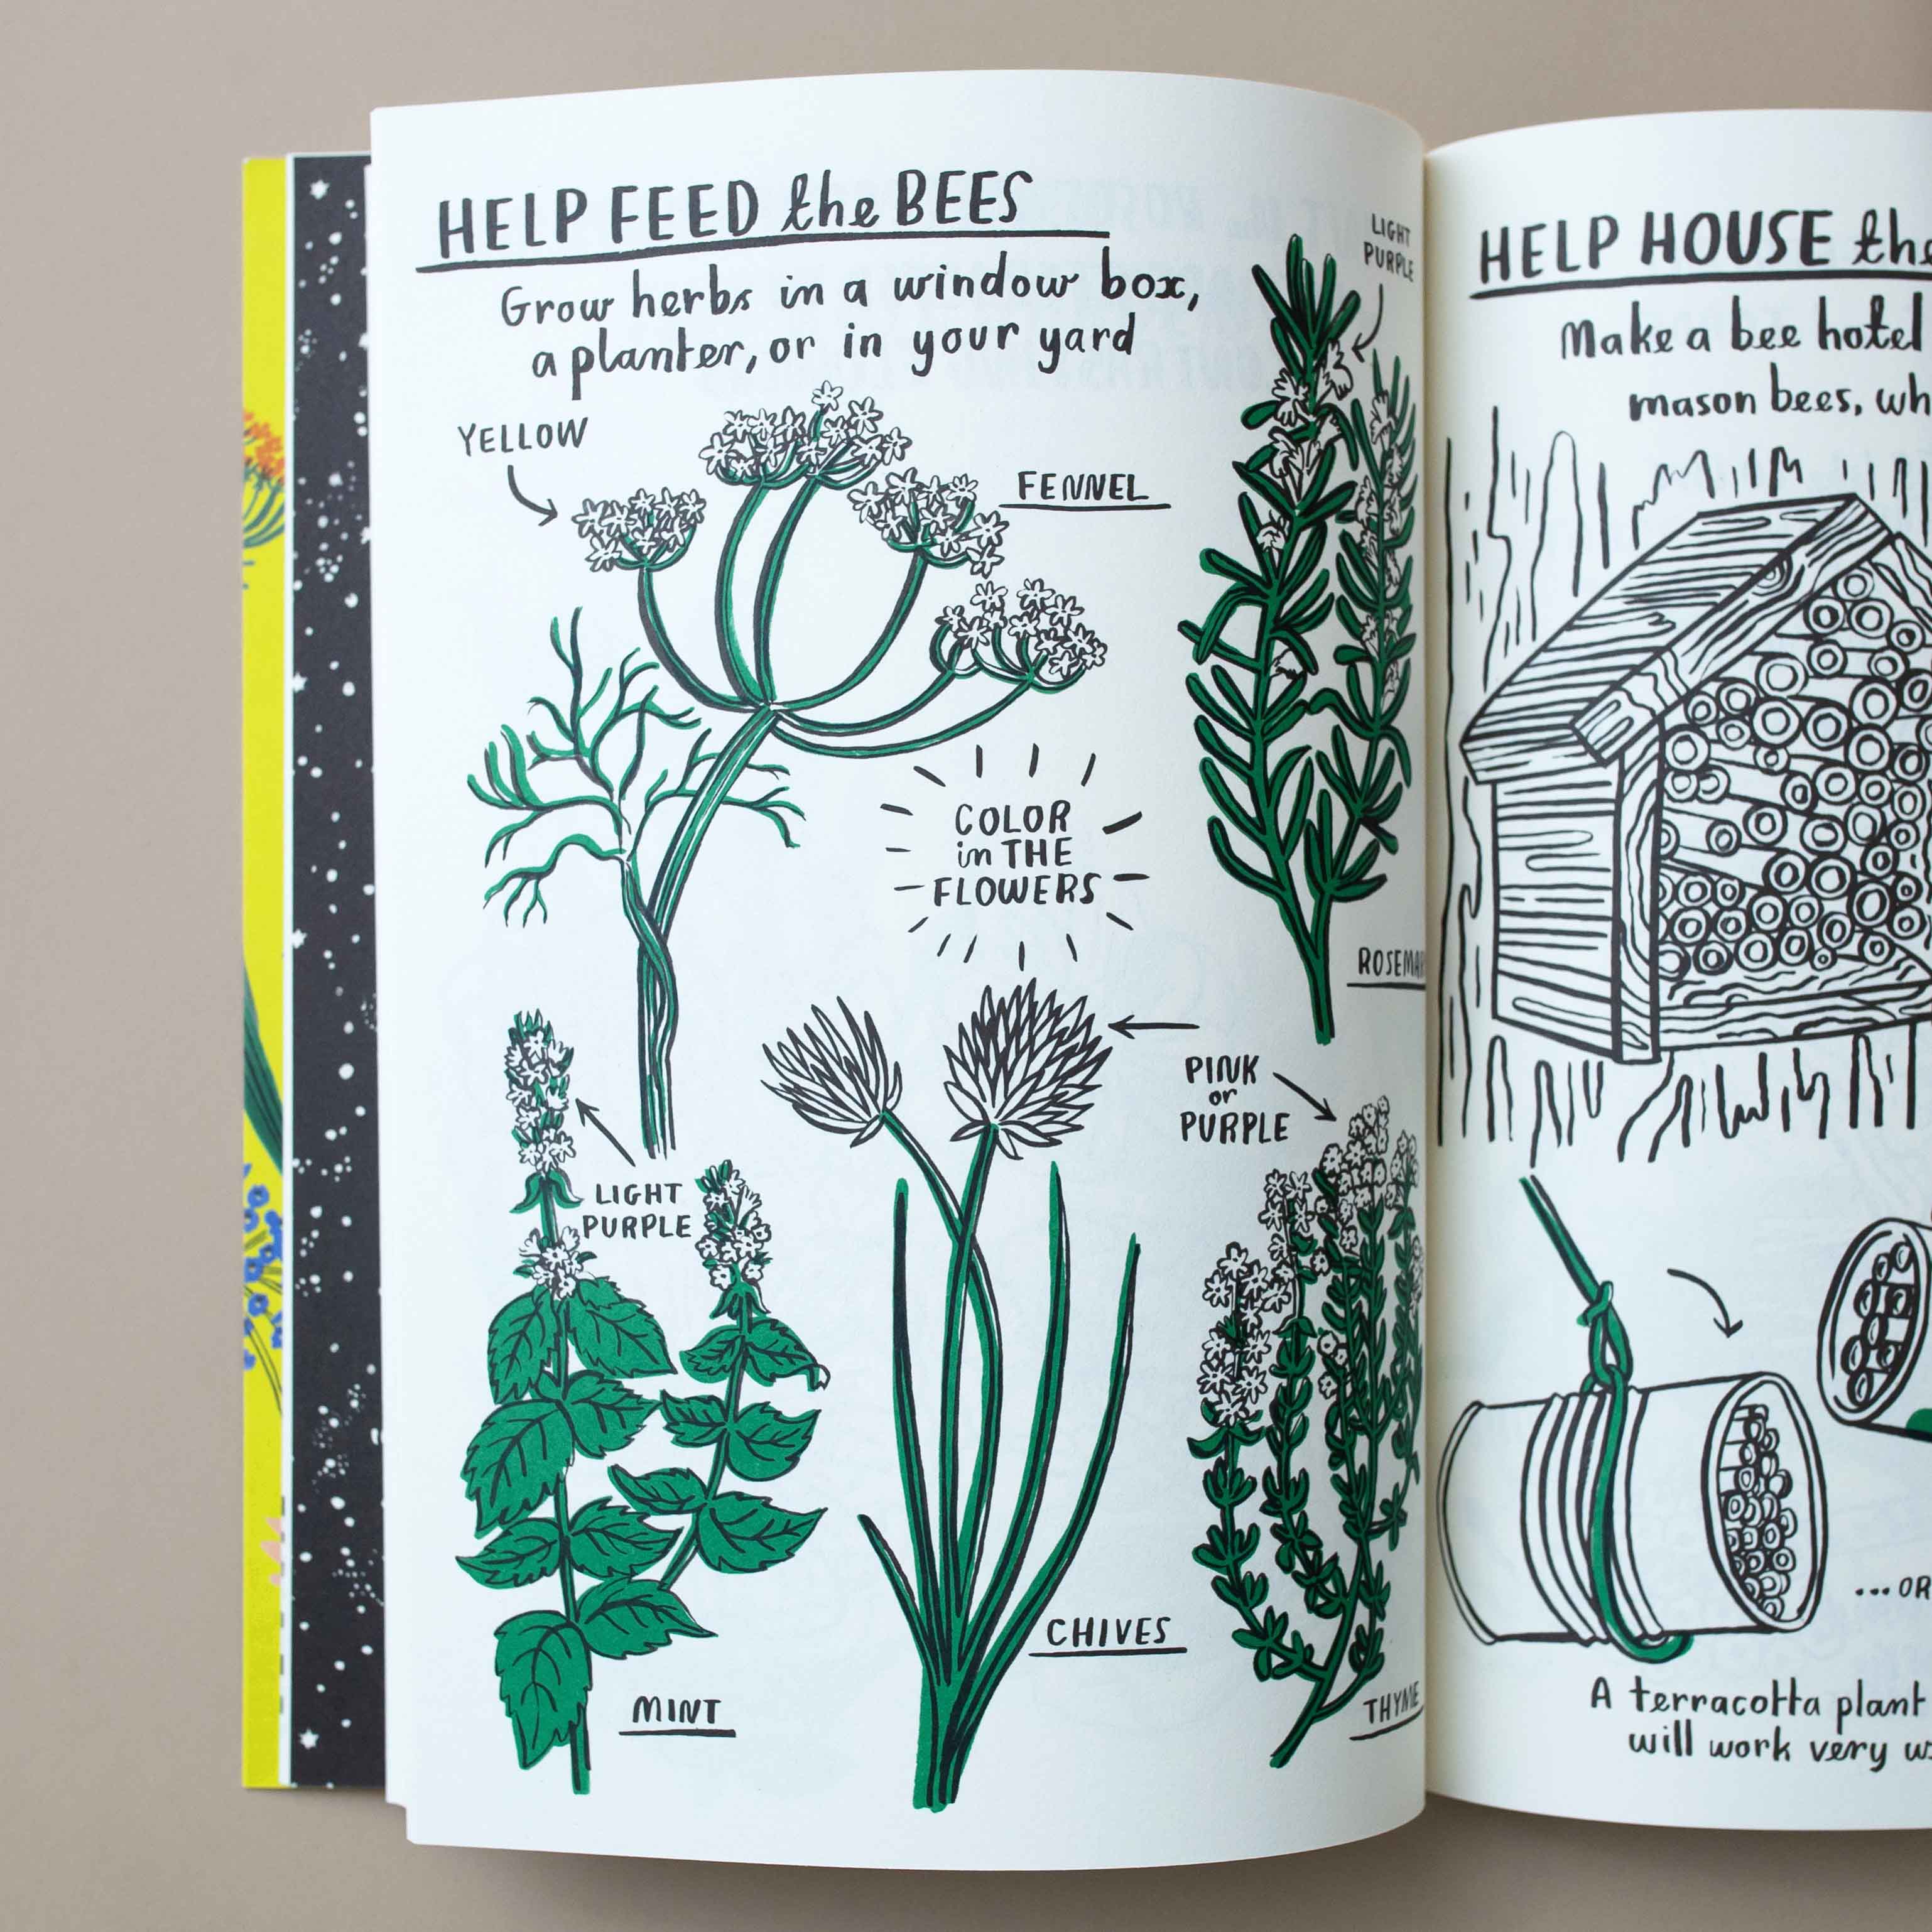 HELP FEED the BEES
Grow herbs in a window box,
a planter, or in your yard
YELLOW
FENNEL
LIGHT
PURPLE
COLOR
in THE
FLOWERS
ROSEMAR
PINK
or
PURPLE
LIGHT
PURPLE
CHIVES
MINT
THYME
HELP HOUSE the
Make a bee hotel
mason bees, wh
...OR
A terracotta plant
will work very w